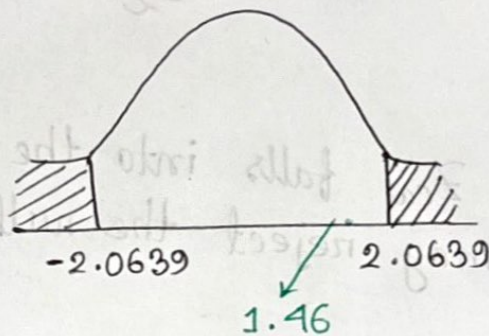 -2.0639 2.0639
1.46